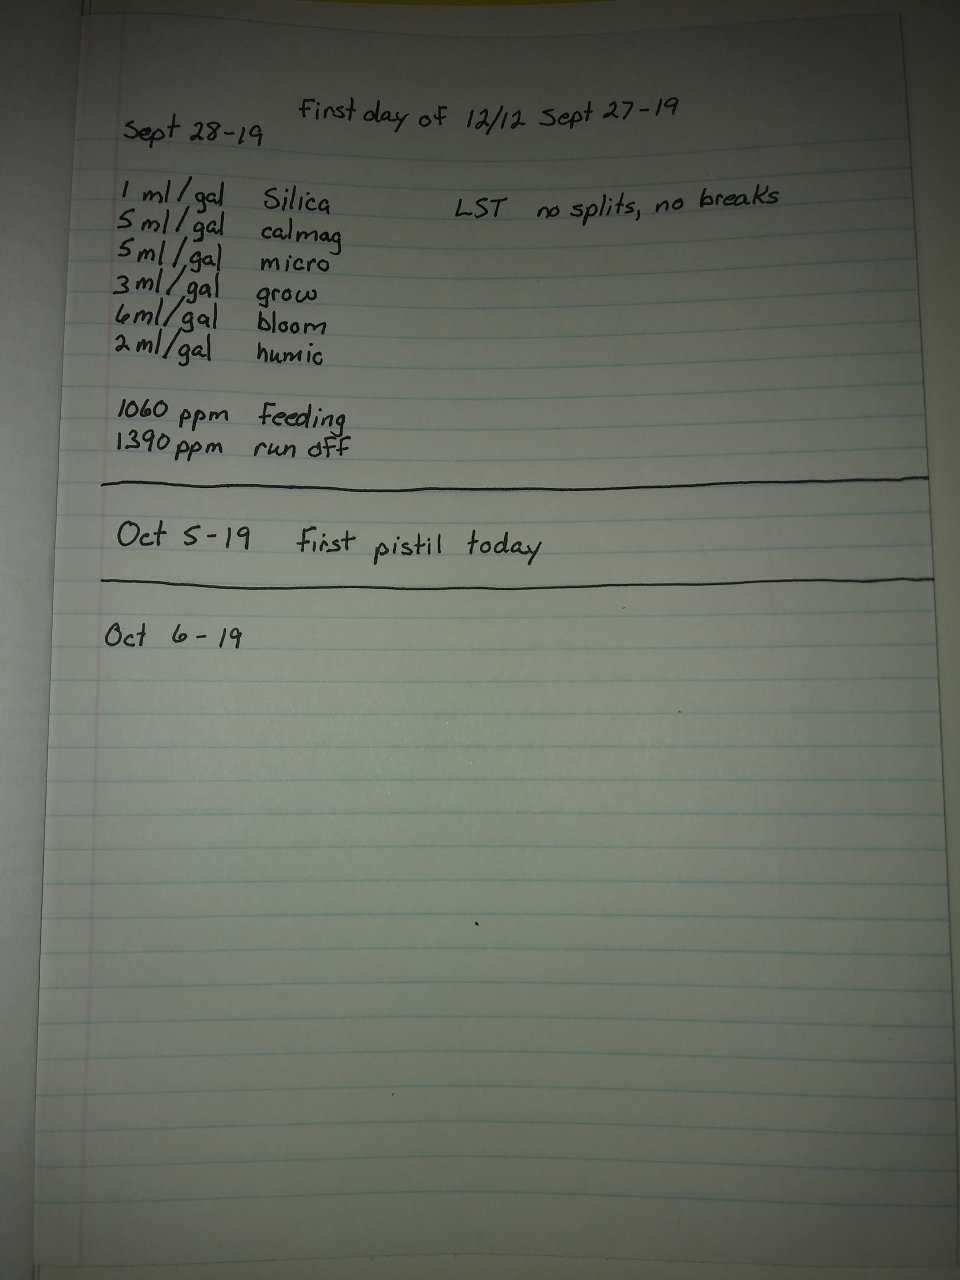 First day of 12/12 Sept 27-19
Sept 28-19
1 ml/gal Silica LST no splits, no breaks
5 ml/gal calmag
5 ml/gal micro
3 ml/gal grow
6 ml/gal bloom
2 ml/gal humic
1060 ppm feeding
1390 ppm run off
Oct 5-19 first pistil today
Oct 6-19